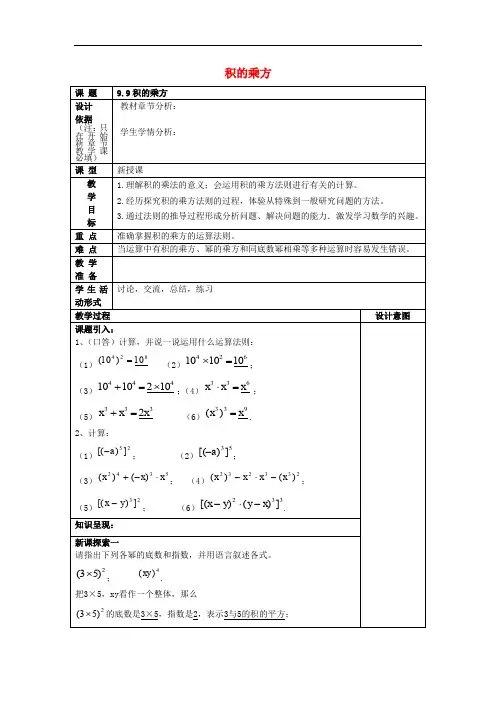 积的乘方
课 题 9.9积的乘方
设计
依据
（注：只
在开始
新章节
教学课
必填）
教材章节分析：
学生学情分析：
课 型 新授课
教
学
目
标
1.理解积的乘法的意义；会运用积的乘方法则进行有关的计算。
2.经历探究积的乘方法则的过程，体验从特殊到一般研究问题的方法。
3.通过法则的推导过程形成分析问题、解决问题的能力．激发学习数学的兴趣。
重 点 准确掌握积的乘方的运算法则。
难 点 当运算中有积的乘方、幂的乘方和同底数幂相乘等多种运算时容易发生错误。
教 学
准 备
学 生 活
动形式
讨论，交流，总结，练习
教学过程 设计意图
课题引入：
1、（口答）计算，并说一说运用什么运算法则：
（1）(10⁴)²=10⁸ （2）10⁴×10²=10⁶；
（3）10⁴+10⁴=2×10⁴；（4）x³·x³=x⁶；
（5）x³+x³=2x³ （6）(x³)³=x⁹．
2、计算：
（1）[(-a)³]²； （2）[(-a)³]⁵；
（3）(x²)⁴+(-x)³·x⁵； （4）(x²)³-x²·x-(x³)²；
（5）[(x-y)³]²； （6）[(x-y)²·(y-x)³]³．
知识呈现：
新课探索一
请指出下列各幂的底数和指数，并用语言叙述各式。
(3×5)²； (xy)⁴．
把3×5，xy看作一个整体，那么
(3×5)²的底数是3×5，指数是2，表示3与5的积的平方；